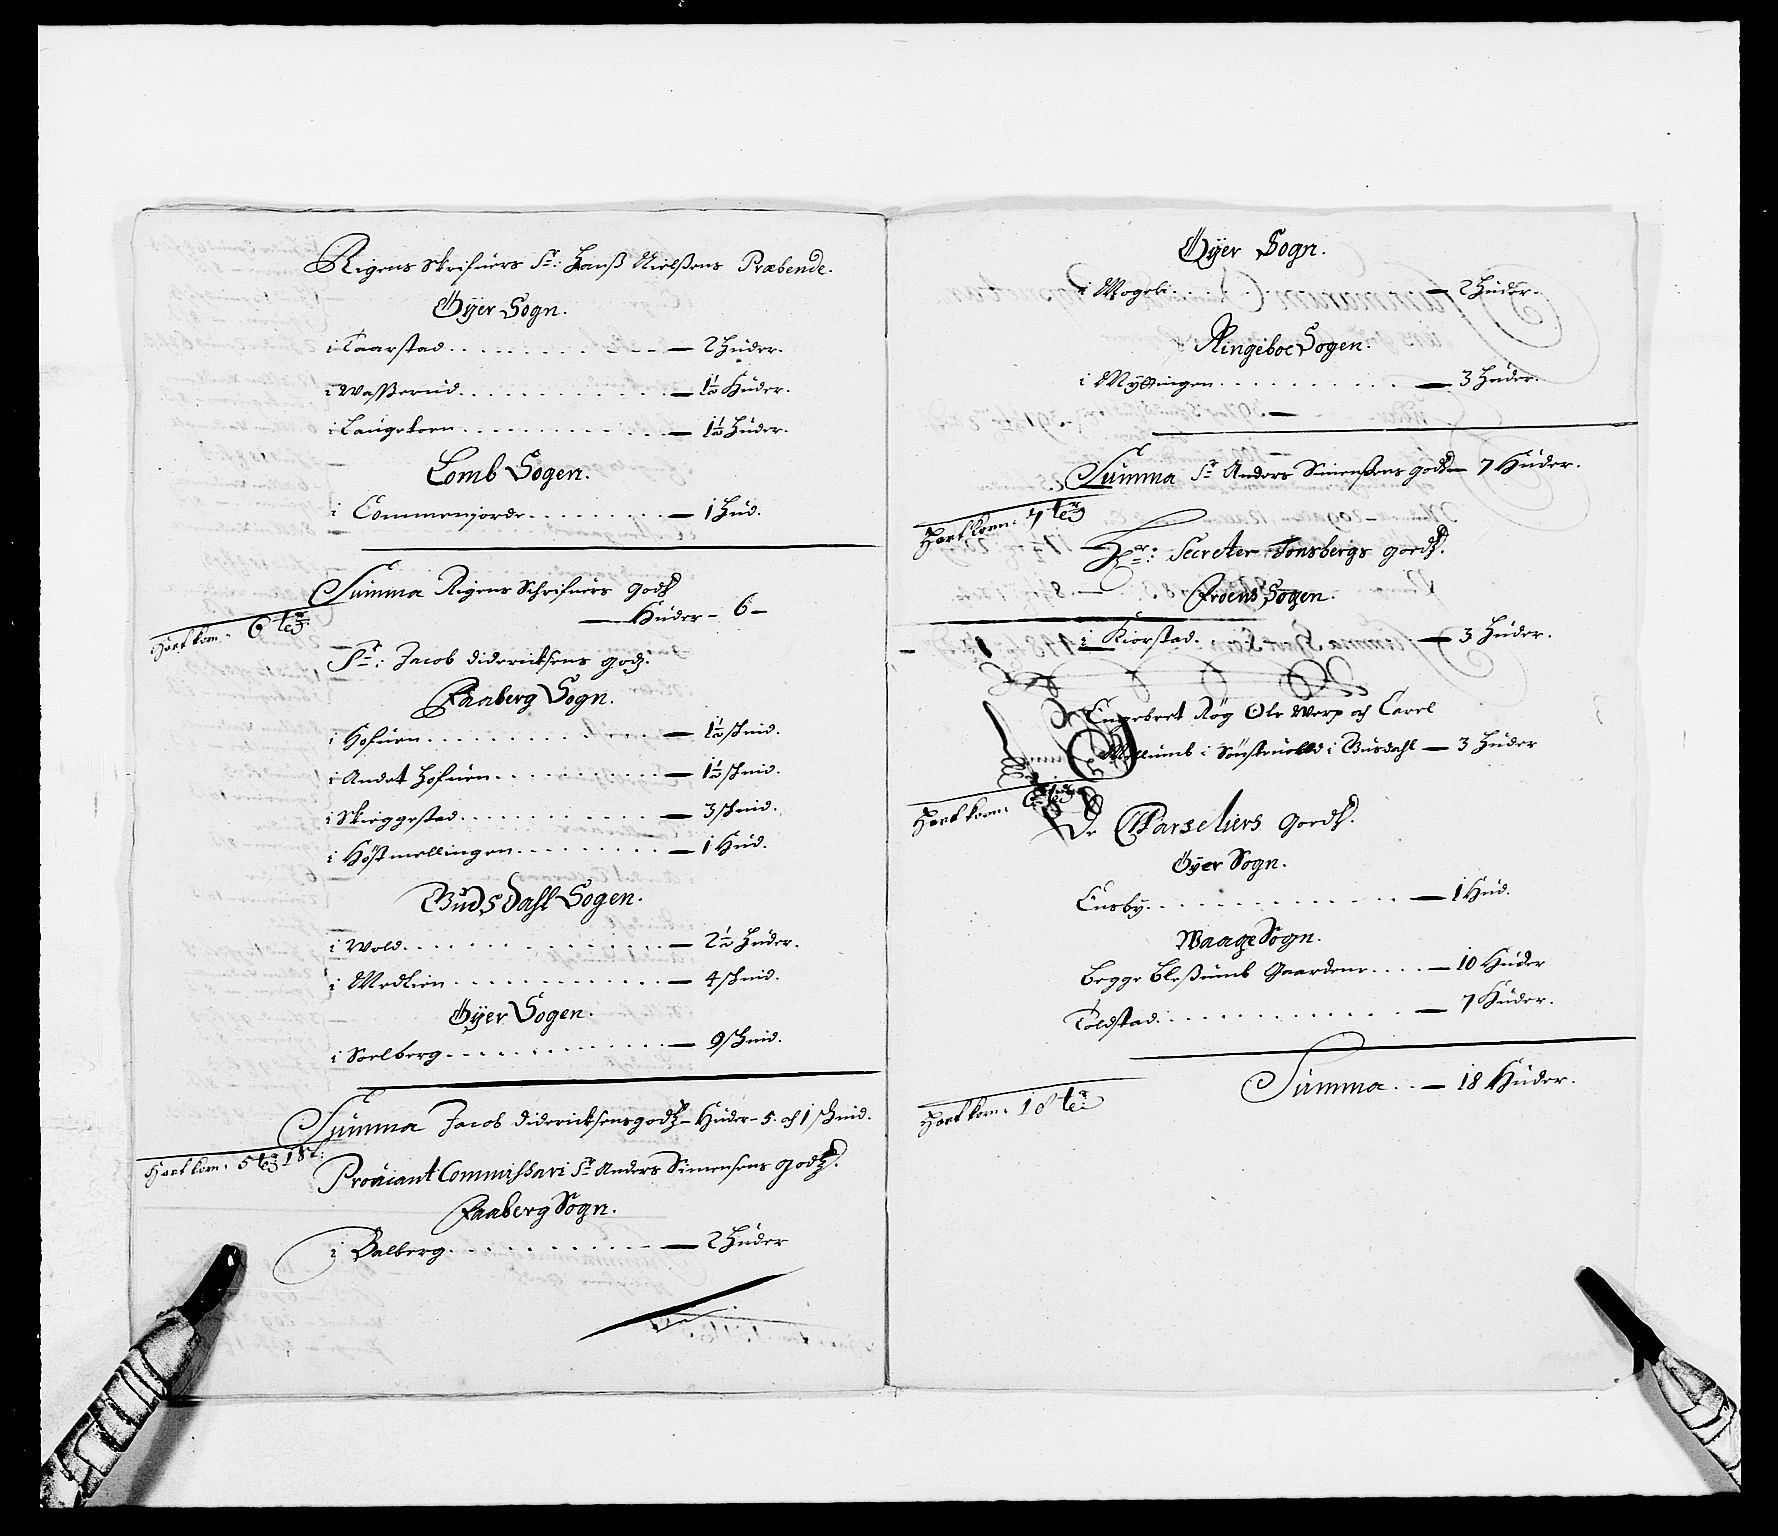 Rigens Skrifuers Sr: Hanß Nielßens Præbende.
Öÿer Sogn.
i Taarstad. . . . . . . . . . — 2 Huder.
i Waßerud. . . . . . . . . . — 1½ Huder.
i Laugekorn. . . . . . . . . — 1½ Huder.
Lomb Sogen.
i Commenjorde. . . . . . . . — 1 Hud.
Summa Rigens Schrifuers godß
— Huder – 6 –
Hartkorn: 6 ter
Sr: Jacob Didericksens godz.
Faaberg Sogn.
i Hofuen. . . . . . . . . . — 1½ skind.
i Andet Hofuen. . . . . . . . — 1½ skind.
i Skieggestad. . . . . . . . — 3 skind.
i Høstmellingen. . . . . . . — 1 Hud.
Budsdahl Sogen.
i Wold. . . . . . . . . . . — 2½ Huder.
i Medlien. . . . . . . . . . — 4 skind.
Öÿer Sogen.
i Soelberg. . . . . . . . . . — 9 skind.
Summa Jacob Didericksens godz – Huder – 5. och 1 skind.
Hartkorn: 5 ter
Proviant Commissari Sr Anders Simensens godz.
Faaberg Sogn.
i Balberg. . . . . . . . . . — 2 Huder
Öÿer Sogn.
i Mogeli. . . . . . . . . . — 2 Huder.
Ringeboe Sogen.
i Mÿttingen. . . . . . . . . — 3 Huder.
Summa Sr Anders Simenßens godß — 7 Huder.
Hartkorn: 7 ter
Hr: Secreter Tonsbergs godß.
Froens Sogen.
i Kiorstad. — 3 Huder.
Engebret Røg Ole Werp och Carel
i Sønstevold i Busdahl — 3 Huder
Hartkorn: 6 ter
De Parseliers Godß.
Öÿer Sogn.
Ensbÿ. . . . . . . . . . . . — 1 Hud.
Waage Sogn.
Begge Bleßumb Gaardene. . . . — 10 Huder
Toldstad. . . . . . . . . . . — 7 Huder.
Summa. . . — 18 Huder.
Hartkorn: 18 ter